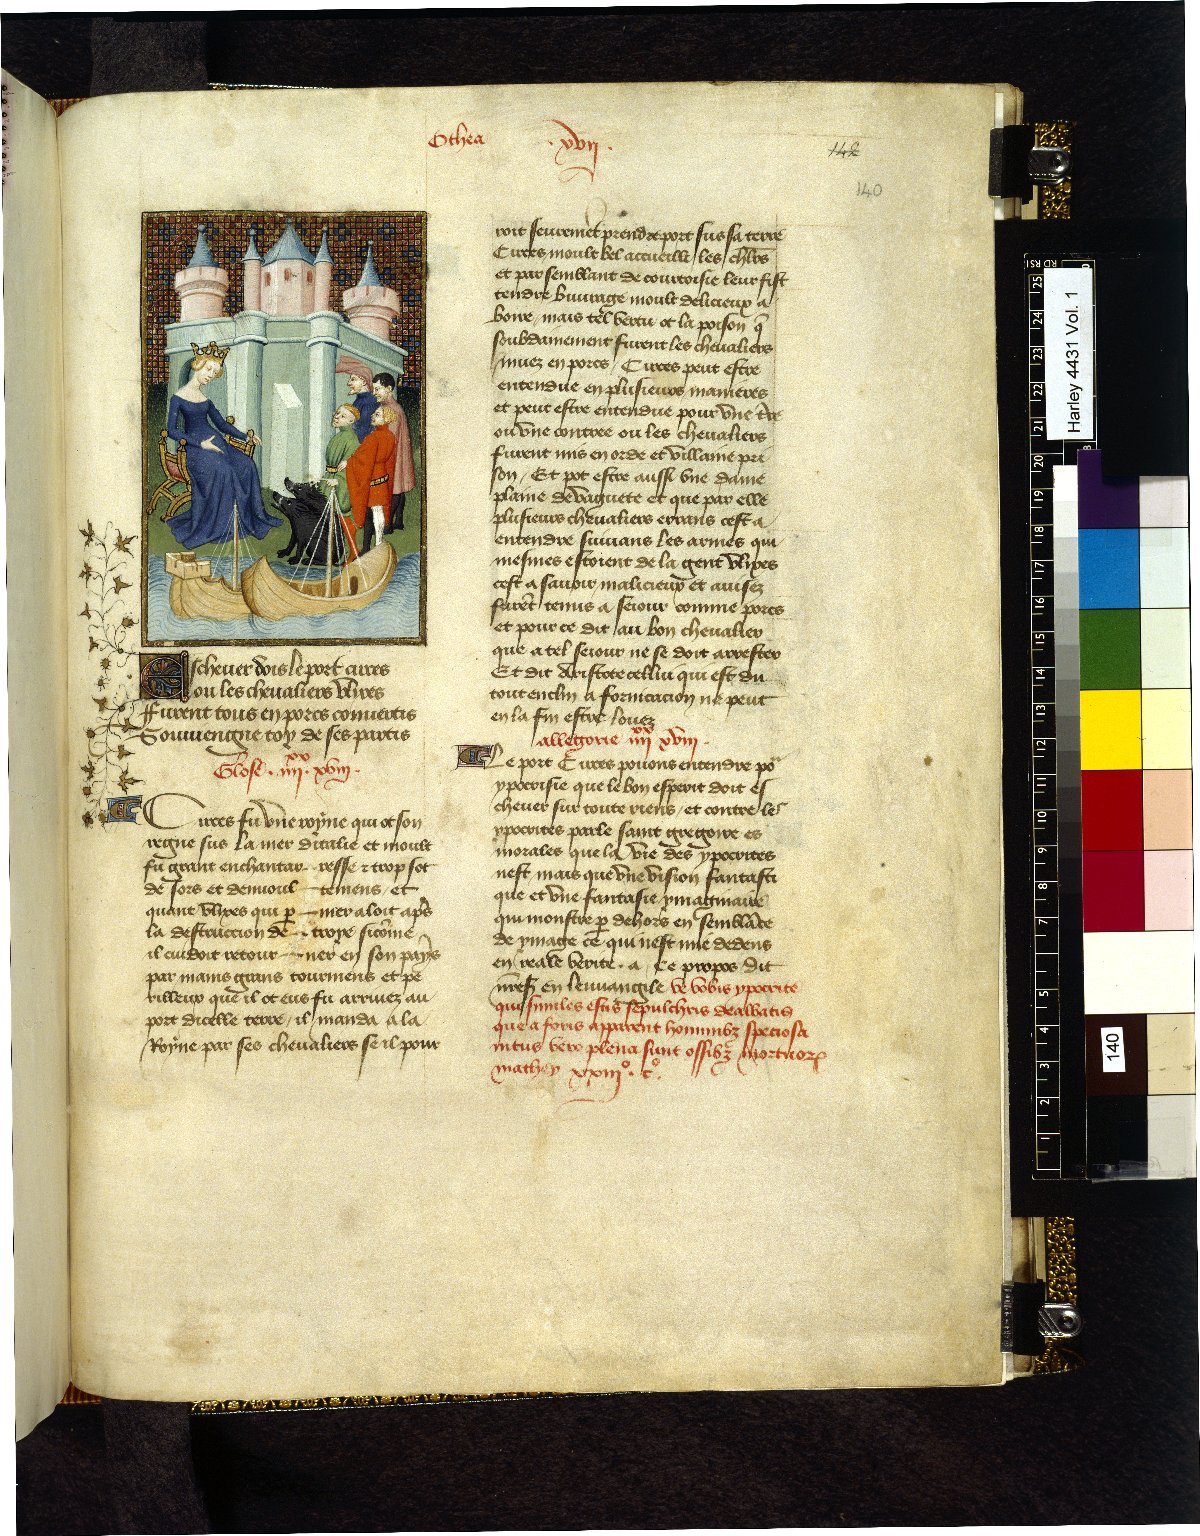 Othea .xvii.
148
140
Escheuer dois le port circes
ou les cheualiers Vlixes
Furent tous en porcs conuertis
Souuiengne toy de ses partis
Glose . iiii xx . xviii .
Circes fu vne royne qui ot son
regne sus la mer ditalie et moult
fu grant enchantar resse & trop sot
de sors et denuoul temens , et
quant Vlixes qui p mer aloit aps
la destruccion de troye sicome
il cuidoit retour ner en son pays
par mains grans tourmens et pe
rilleux que il ot eus fu arriuez au
port dicelle terre , il manda a la
Royne par ses cheualiers se il pour
roit seuremēt prendre port sus sa terre
Circes moult bel accueilli les chlrs
et par semblant de courtoisie leur fist
tendre buurage moult delicieux a
boire , mais tel vertu ot la poison q̄
soubdainement furent les cheualiers
muez en porcs , Circes peut estre
entendue en plusieurs manieres
et peut estre entendue pour vne tr̄e
ou vne contree ou les cheualiers
furent mis en orde et villaine pri
son , Et pot estre aussi vne dame
plaine de vaguete et que par elle
plusieurs cheualiers errans cest a
entendre suiuans les armes qui
mesmes estoient de la gent Vlixes
cest a sauoir malicieux et auisez
furēt tenus a seiour comme porcs
et pour ce dit au bon cheualier
que a tel seiour ne se doit arrester
Et dit Aristote cellui qui est du
tout enclin a fornicacion ne peut
en la fin estre louez
allegorie iiii xx xviii .
Le port Circes pouons entendre po
ypocrisie que le bon esperit doit es
cheuer sur toute riens , et contre les
ypocrites parle saint gregoire es
morales que la vie des ypocrites
nest mais que vne vision fantasti
que et vne fantasie ymaginaire
qui monstre p dehors en semblāce
de ymage ce qui nest mie dedens
en reale verite . a ce propos dit
en leuuangile ve vobis ypocrite
qui similes estis sepulchris dealbatis
que a foris apparent hominibꝫ speciosa
intus vero plena sunt ossibꝫ mortuorꝝ
mathey xxiiiº . cº .
Harley 4431 Vol. 1
25
24
23
22
21
20
19
18
17
16
15
14
13
12
11
10
9
8
7
6
5
4
3
2
1
140